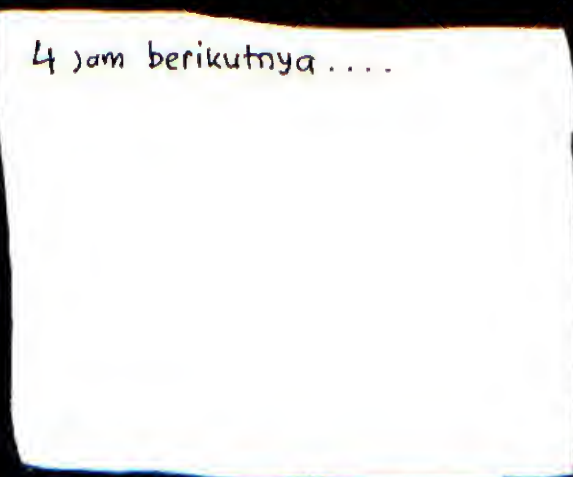 4 jam berikutnya ....